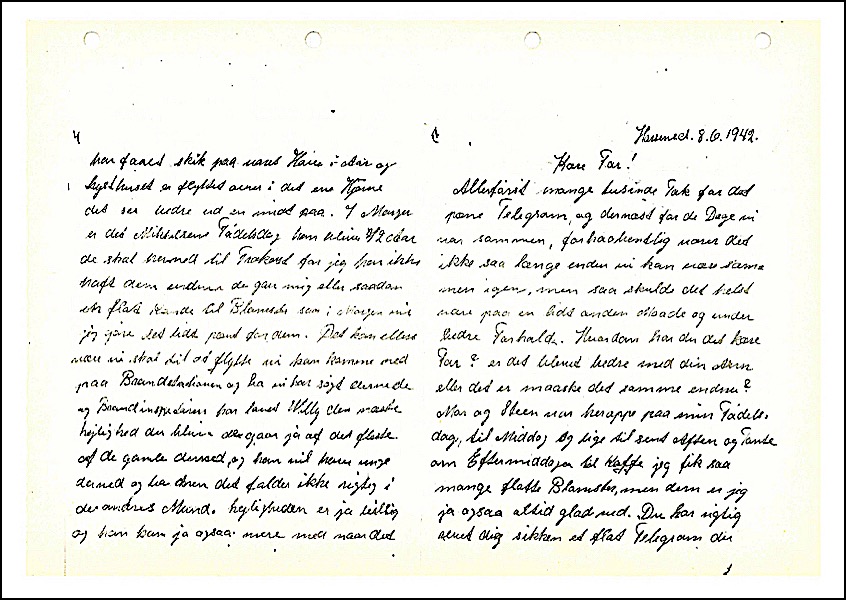 4
har faaet skik paa vores Have i Aar og
Lysthuset er flyttet over i det ene Hjørne
det ser bedre ud en midt paa. I Morgen
er det Fødelsdag han bliver 42 Aar
de skal herned til Frokost for jeg har ikke
haft dem endnu de gav mig eller saadan
en flot Blomster saa i Morgen vil
jeg gøre det lidt pænt for dem. Det kan ellers
være vi skal til at flytte vi kan komme ned
paa Brandstationen og ha vi har søgt dernede
og Brandinspektøren har lovet Willy den næste
lejlighed der bliver der gaar jo af det fleste
af de gamle derned, og han vil have unge
derned og det falder ikke rigtig i
de andres Mund. lejligheden er jo billig
og han kan jo ogsaa være med naar det
1
8.6.1942.
Kære Far!
Allerførst mange tusinde Tak for det
pæne Telegram, og dernæst for de Dage vi
var sammen, forhaabentlig varer det
ikke saa længe enden vi kan være sam=
men igen, men saa skulde det helst
være paa en lidt anden Maade og under
bedre Forhold. Hvordan har du det kære
Far? er det blevet bedre med din Arm
eller det er maaske det samme endnu?
Mor og Steen var heroppe paa min Fødels=
dag, til Middag og lige til sent Aften og Tante
om Eftermiddagen til Kaffe jeg fik saa
mange flotte Blomster, men dem er jeg
jo ogsaa altid glad ved. Du har rigtig
dig sikken et flot Telegram du
1